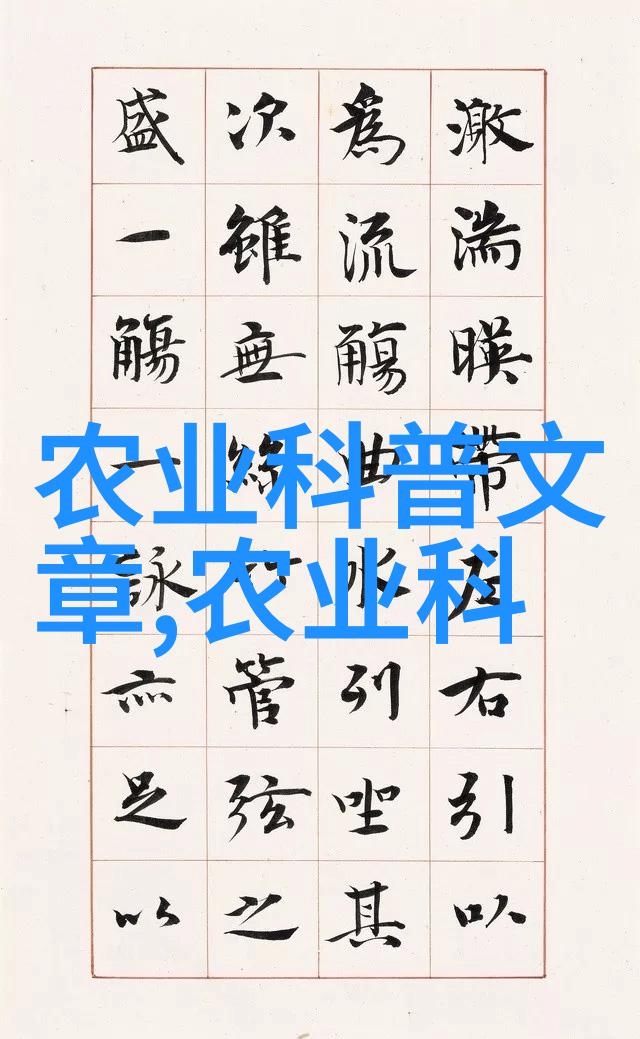 激湍暎帶左右引以
為流觴曲水列坐其
次雖無絲竹管弦之
盛一觴一詠亦足以
农业科普文
章,农业科